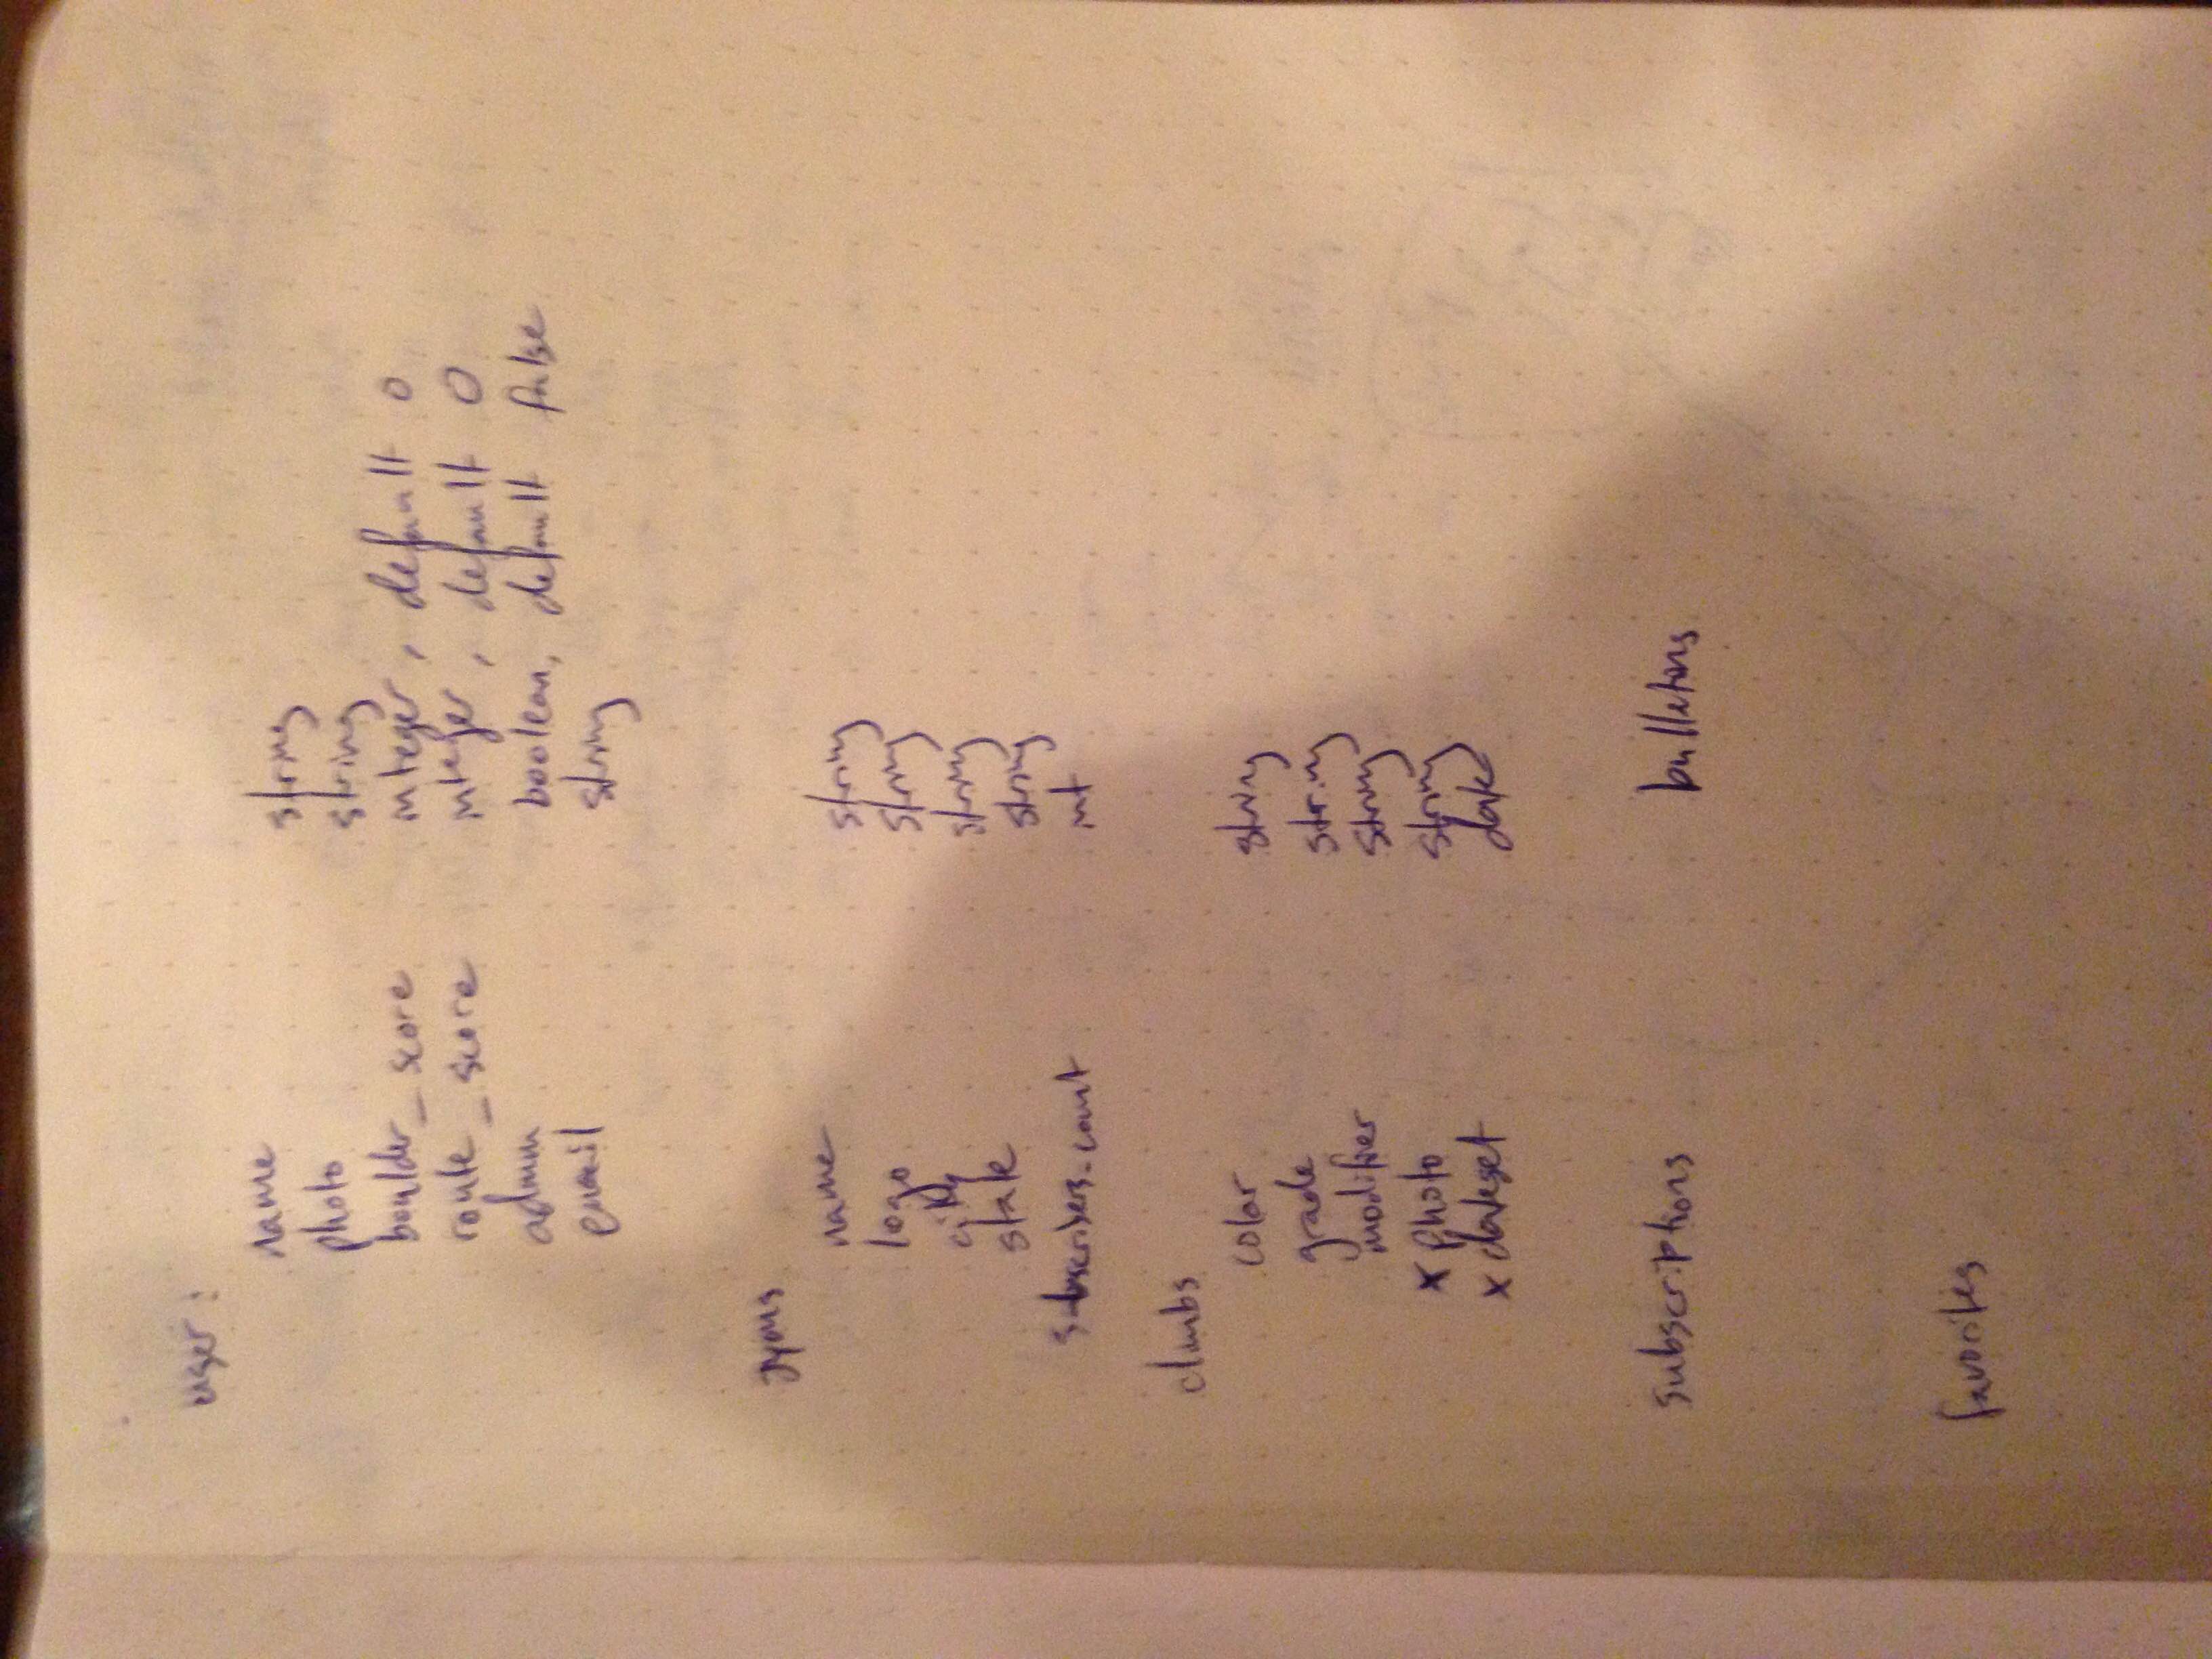 user:
name string
photo string
boulder_score integer, default 0
route_score integer, default 0
admin boolean, default false
email string
gyms
name string
logo string
city string
state string
subscribers_count int
climbs
color string
grade string
modifier string
x photo string
x dateset date
subscriptions bulletins
favorites